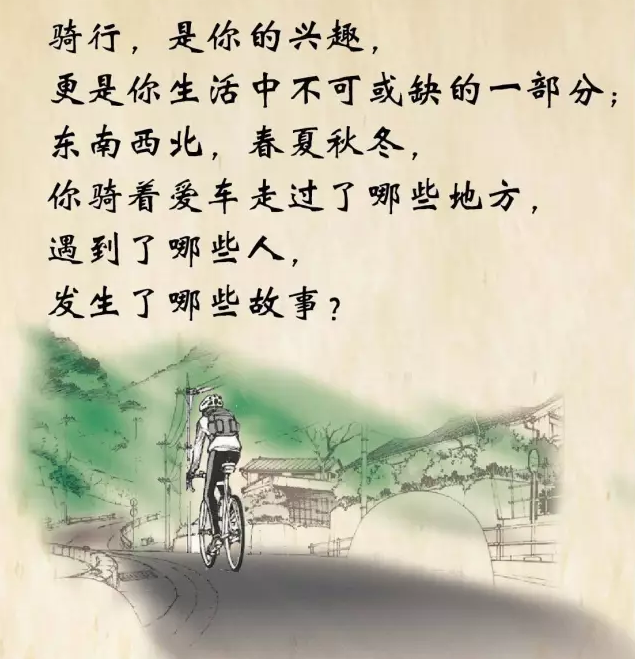 骑行，是你的兴趣，
更是你生活中不可或缺的一部分；
东南西北，春夏秋冬，
你骑着爱车走过了哪些地方，
遇到了哪些人，
发生了哪些故事？